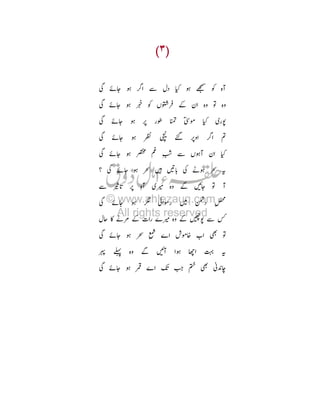 (۳)
آہ کو سمجھے ہو کیا دل سے اگر ہو جائے گی
وہ تو وہ ان کے فرشتوں کو خبر ہو جائے گی
پوری کیا موسیٰ تمنا طور پر ہو جائے گی
تم اگر اوپر گئے نیچی نظر ہو جائے گی
کیا ان آہوں سے شب غم مختصر ہو جائے گی
یہ سحر ہونے کی باتیں ہیں سحر ہو جائے گی ؟
آ تو جائیں گے وہ میری آہ پر تاثیر سے
محفل میں رسوائی مگر ہو جائے گی
کس سے پوچھیں گے وہ میرے رات کے مرنے کا حال
تو بھی اب خاموش اے شمع سحر ہو جائے گی
یہ بہت اچھا ہوا آئیں گے وہ پہلے پہر
چاندنی بھی ختم جب تک اے قمر ہو جائے گی
© www.ahlezauq.com
All rights reserved